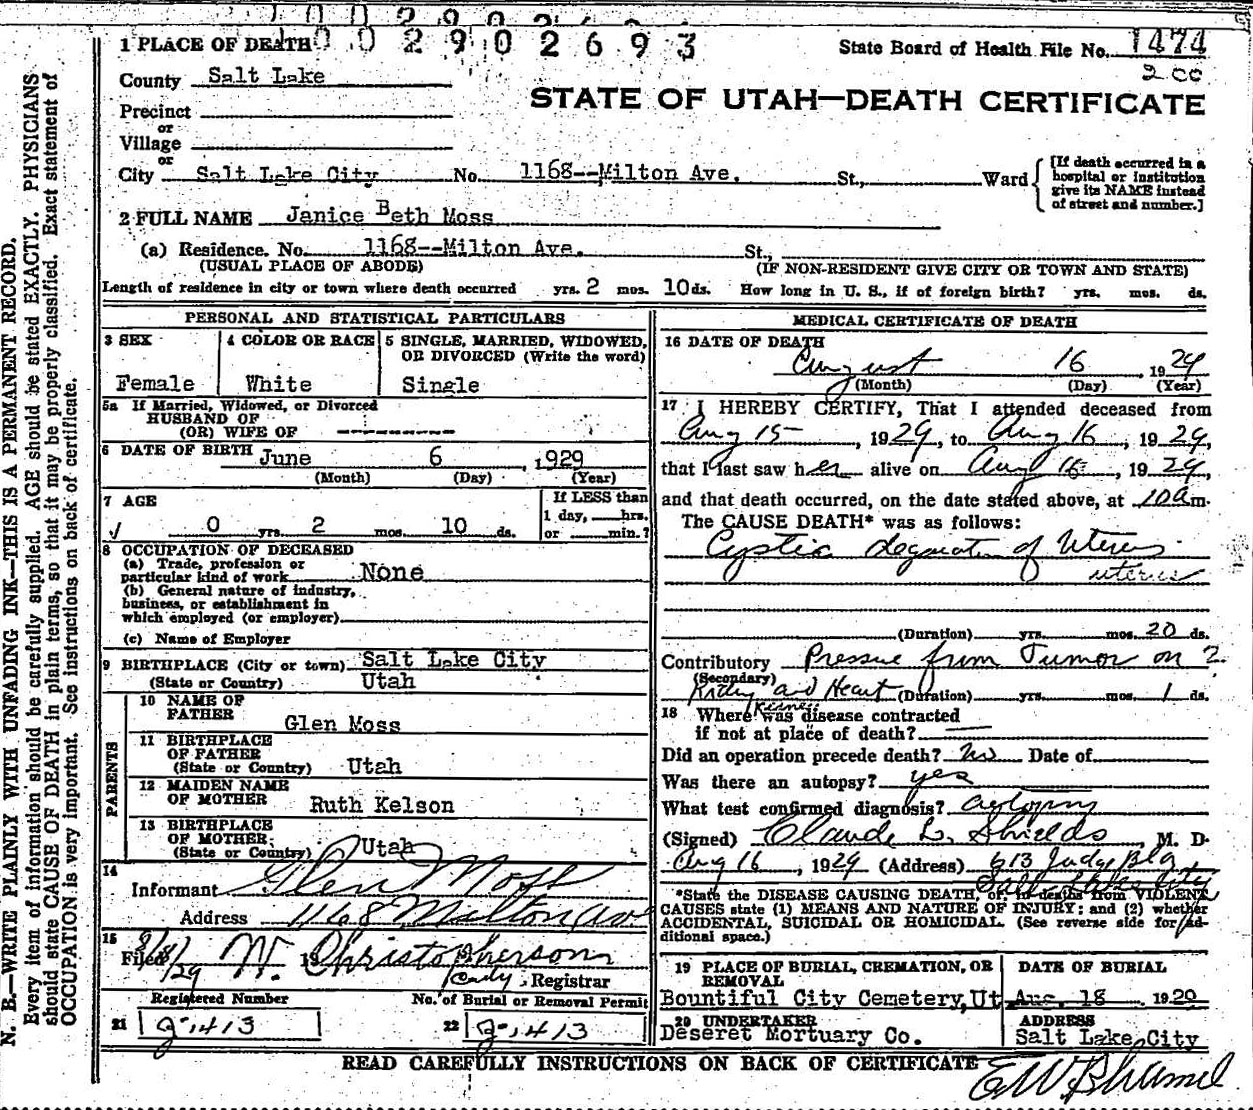 1 0 0 2 9 0 2 6 9 3
1 PLACE OF DEATH
State Board of Health File No. 1474
200
County Salt Lake
STATE OF UTAH—DEATH CERTIFICATE
Precinct
or
Village
or
City Salt Lake City No. 1168--Milton Ave. St., Ward
[If death occurred in a
hospital or institution
give its NAME instead
of street and number.]
2 FULL NAME Janice Beth Moss
(a) Residence. No. 1168--Milton Ave. St.,
(USUAL PLACE OF ABODE) (IF NON-RESIDENT GIVE CITY OR TOWN AND STATE)
Length of residence in city or town where death occurred yrs. 2 mos. 10 ds. How long in U. S., if of foreign birth? yrs. mos. ds.
PERSONAL AND STATISTICAL PARTICULARS
3 SEX 4 COLOR OR RACE 5 SINGLE, MARRIED, WIDOWED,
OR DIVORCED (Write the word)
Female White Single
5a If Married, Widowed, or Divorced
HUSBAND OF
(OR) WIFE OF ----------
6 DATE OF BIRTH June 6, 1929
(Month) (Day) (Year)
7 AGE If LESS than
1 day, hrs.
0 yrs. 2 mos. 10 ds. or min.?
8 OCCUPATION OF DECEASED
(a) Trade, profession or
particular kind of work None
(b) General nature of industry,
business, or establishment in
which employed (or employer)
(c) Name of Employer
9 BIRTHPLACE (City or town) Salt Lake City
(State or Country) Utah
PARENTS
10 NAME OF
FATHER Glen Moss
11 BIRTHPLACE
OF FATHER
(State or Country) Utah
12 MAIDEN NAME
OF MOTHER Ruth Kelson
13 BIRTHPLACE
OF MOTHER
(State or Country) Utah
14
Informant Glen Moss
Address 1168 Milton Ave
15
Filed W. Christopherson
, Registrar
Registered Number No. of Burial or Removal Permit
21 1413 22 1413
MEDICAL CERTIFICATE OF DEATH
16 DATE OF DEATH
August 16, 1929
(Month) (Day) (Year)
17 I HEREBY CERTIFY, That I attended deceased from
Aug 15, 1929, to Aug 16, 1929,
that I last saw her alive on Aug 16, 1929,
and that death occurred, on the date stated above, at 10am.
The CAUSE DEATH* was as follows:
Cystic of Uterus
uterus
(Duration) yrs. mos. 20 ds.
Contributory Pressue from Tumor on ?
(Secondary)
and Heart (Duration) yrs. mos. 1 ds.
18 Where was disease contracted
if not at place of death? —
Did an operation precede death? No Date of
Was there an autopsy? yes
What test confirmed diagnosis? autopsy
(Signed) Claude L. Shields, M. D.
Aug 16, 1929 (Address) 613 Judge Blg
Salt Lake City
*State the DISEASE CAUSING DEATH, or, in deaths from VIOLENT
CAUSES state (1) MEANS AND NATURE OF INJURY; and (2) whether
ACCIDENTAL, SUICIDAL OR HOMICIDAL. (See reverse side for ad-
ditional space.)
19 PLACE OF BURIAL, CREMATION, OR
REMOVAL DATE OF BURIAL
Bountiful City Cemetery, Ut Aug. 18 1929
20 UNDERTAKER ADDRESS
Deseret Mortuary Co. Salt Lake City
READ CAREFULLY INSTRUCTIONS ON BACK OF CERTIFICATE
N. B.—WRITE PLAINLY WITH UNFADING INK—THIS IS A PERMANENT RECORD.
Every item of information should be carefully supplied. AGE should be stated EXACTLY. PHYSICIANS
should state CAUSE OF DEATH in plain terms, so that it may be properly classified. Exact statement of
OCCUPATION is very important. See instructions on back of certificate.